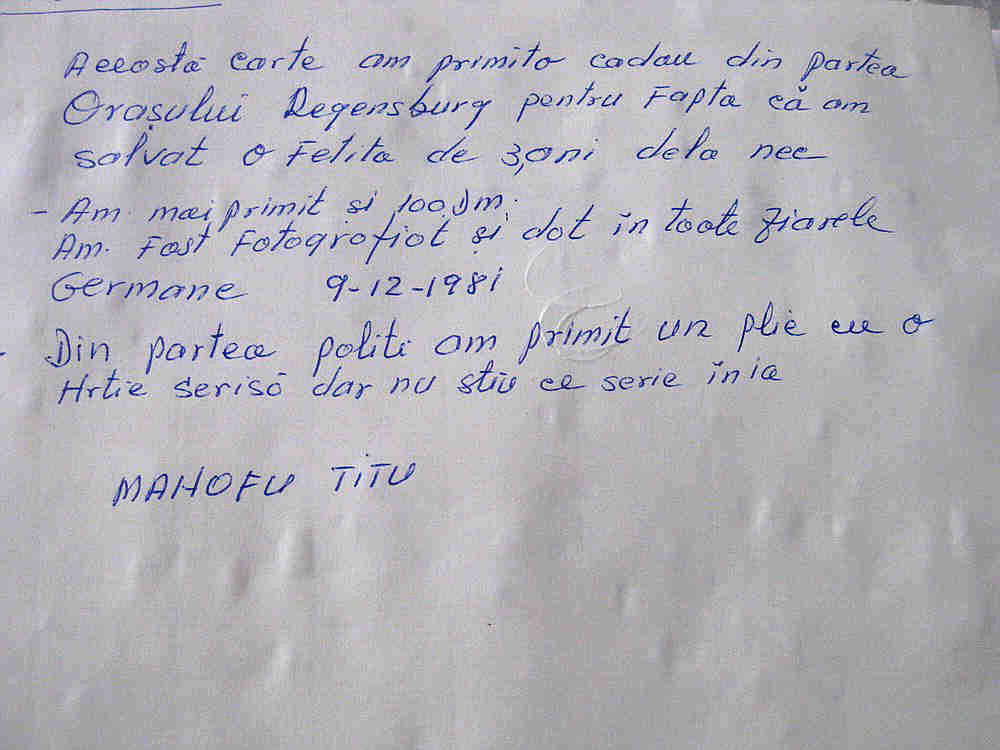 Aceostă carte am primito cadau din partea
Orașului Regensburg pentru Fapta că am
salvat o Fetita de 3,ani dela nec
- Am. mai primit si 100.Dm.
Am. Fost Fotografiat și dat în toate ziarele
Germane 9-12-1981
- Din partea politi am primit un plic cu o
Hrtie scrisă dar nu știu ce scrie în ia
MAHOFU TiTU